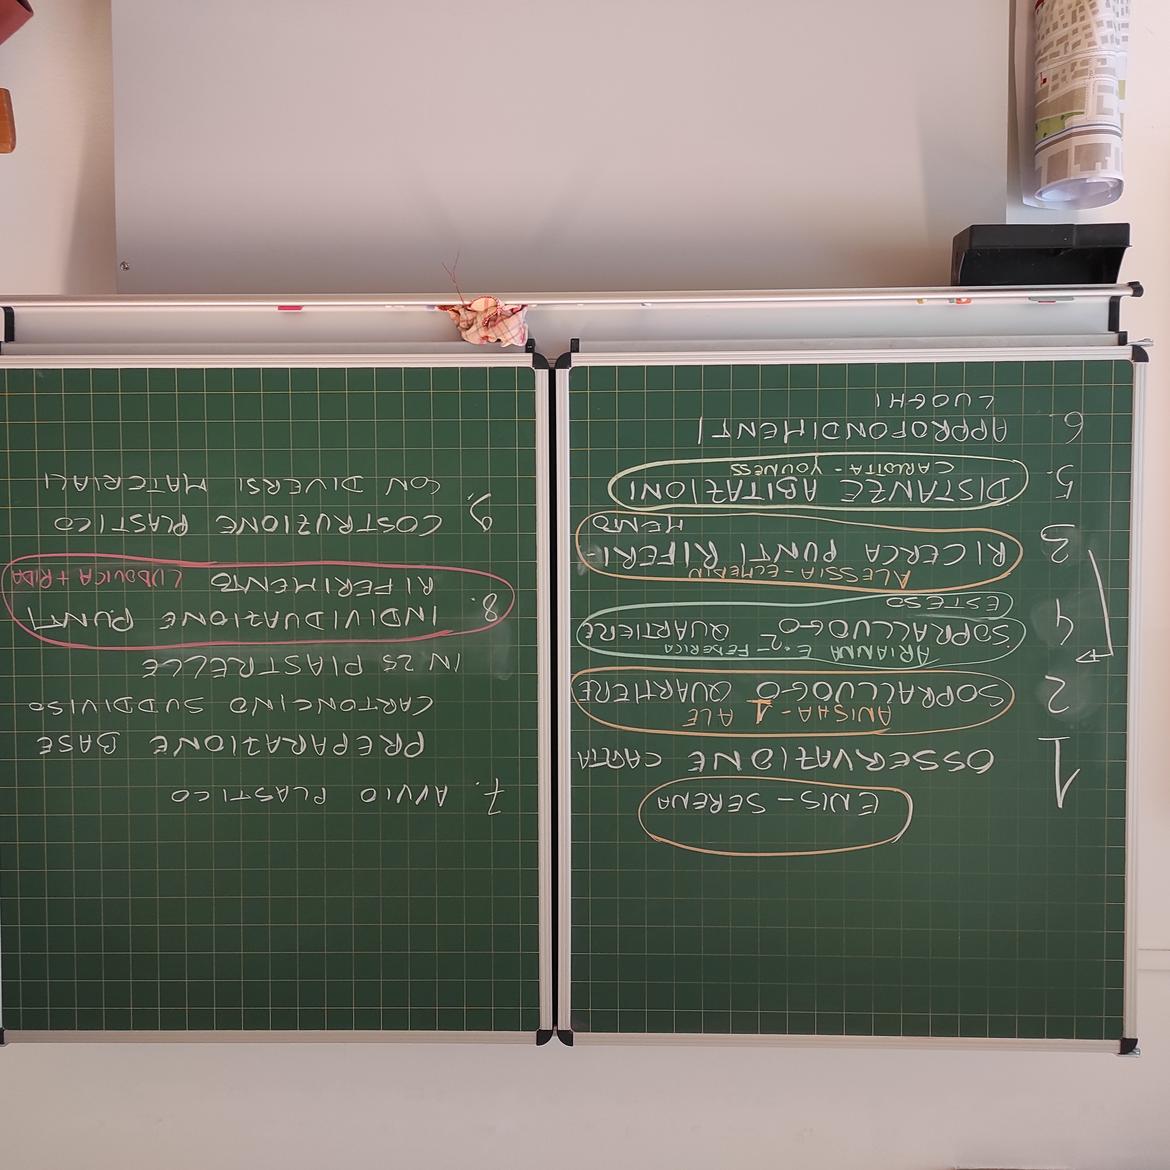 ENIS - SERENA
1 OSSERVAZIONE CARTA
ANISHA - ALE
2 SOPRALLUOGO 1 QUARTIERE
ARIANNA E. - FEDERICA
4 SOPRALLUOGO 2° QUARTIERE
ESTESO
ALESSIA - ECMERIN
3 RICERCA PUNTI RIFERI-
MENTO
5. DISTANZE ABITAZIONI
CARLOTTA - YOUNESS
6. APPROFONDIMENTI
LUOGHI
7. AVVIO PLASTICO
PREPARAZIONE BASE
CARTONCINO SUDDIVISO
IN 25 PIASTRELLE
8. INDIVIDUAZIONE PUNTI
RIFERIMENTO LUDOVICA + RIDA
9. COSTRUZIONE PLASTICO
CON DIVERSI MATERIALI